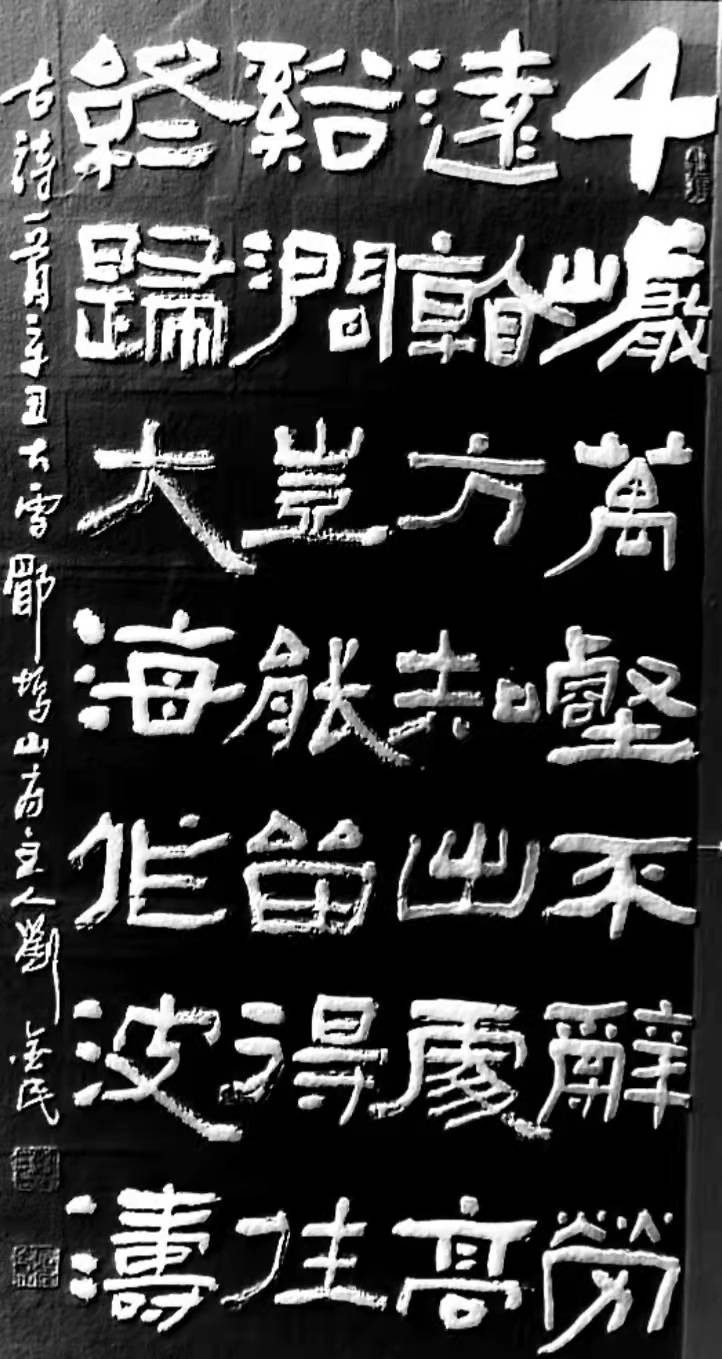 千巖萬壑不辭勞
遠看方知出處高
谿澗豈能留得住
終歸大海作波濤
古詩一首辛丑大雪鄖山房主人劉民